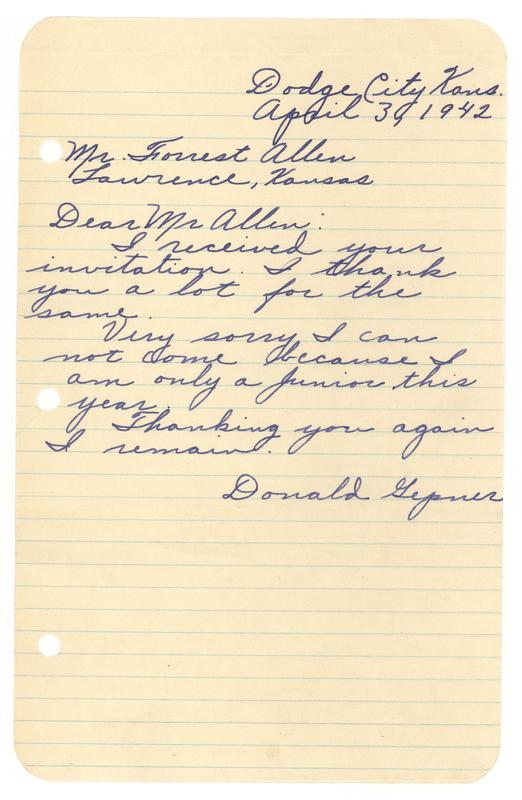 Dodge City Kans.
April 30, 1942
Mr. Forrest Allen
Lawrence, Kansas
Dear Mr Allen:
I received your
invitation. I thank
you a lot for the
same.
Very sorry I can
not come because I
am only a junior this
year.
Thanking you again
I remain.
Donald Gepner